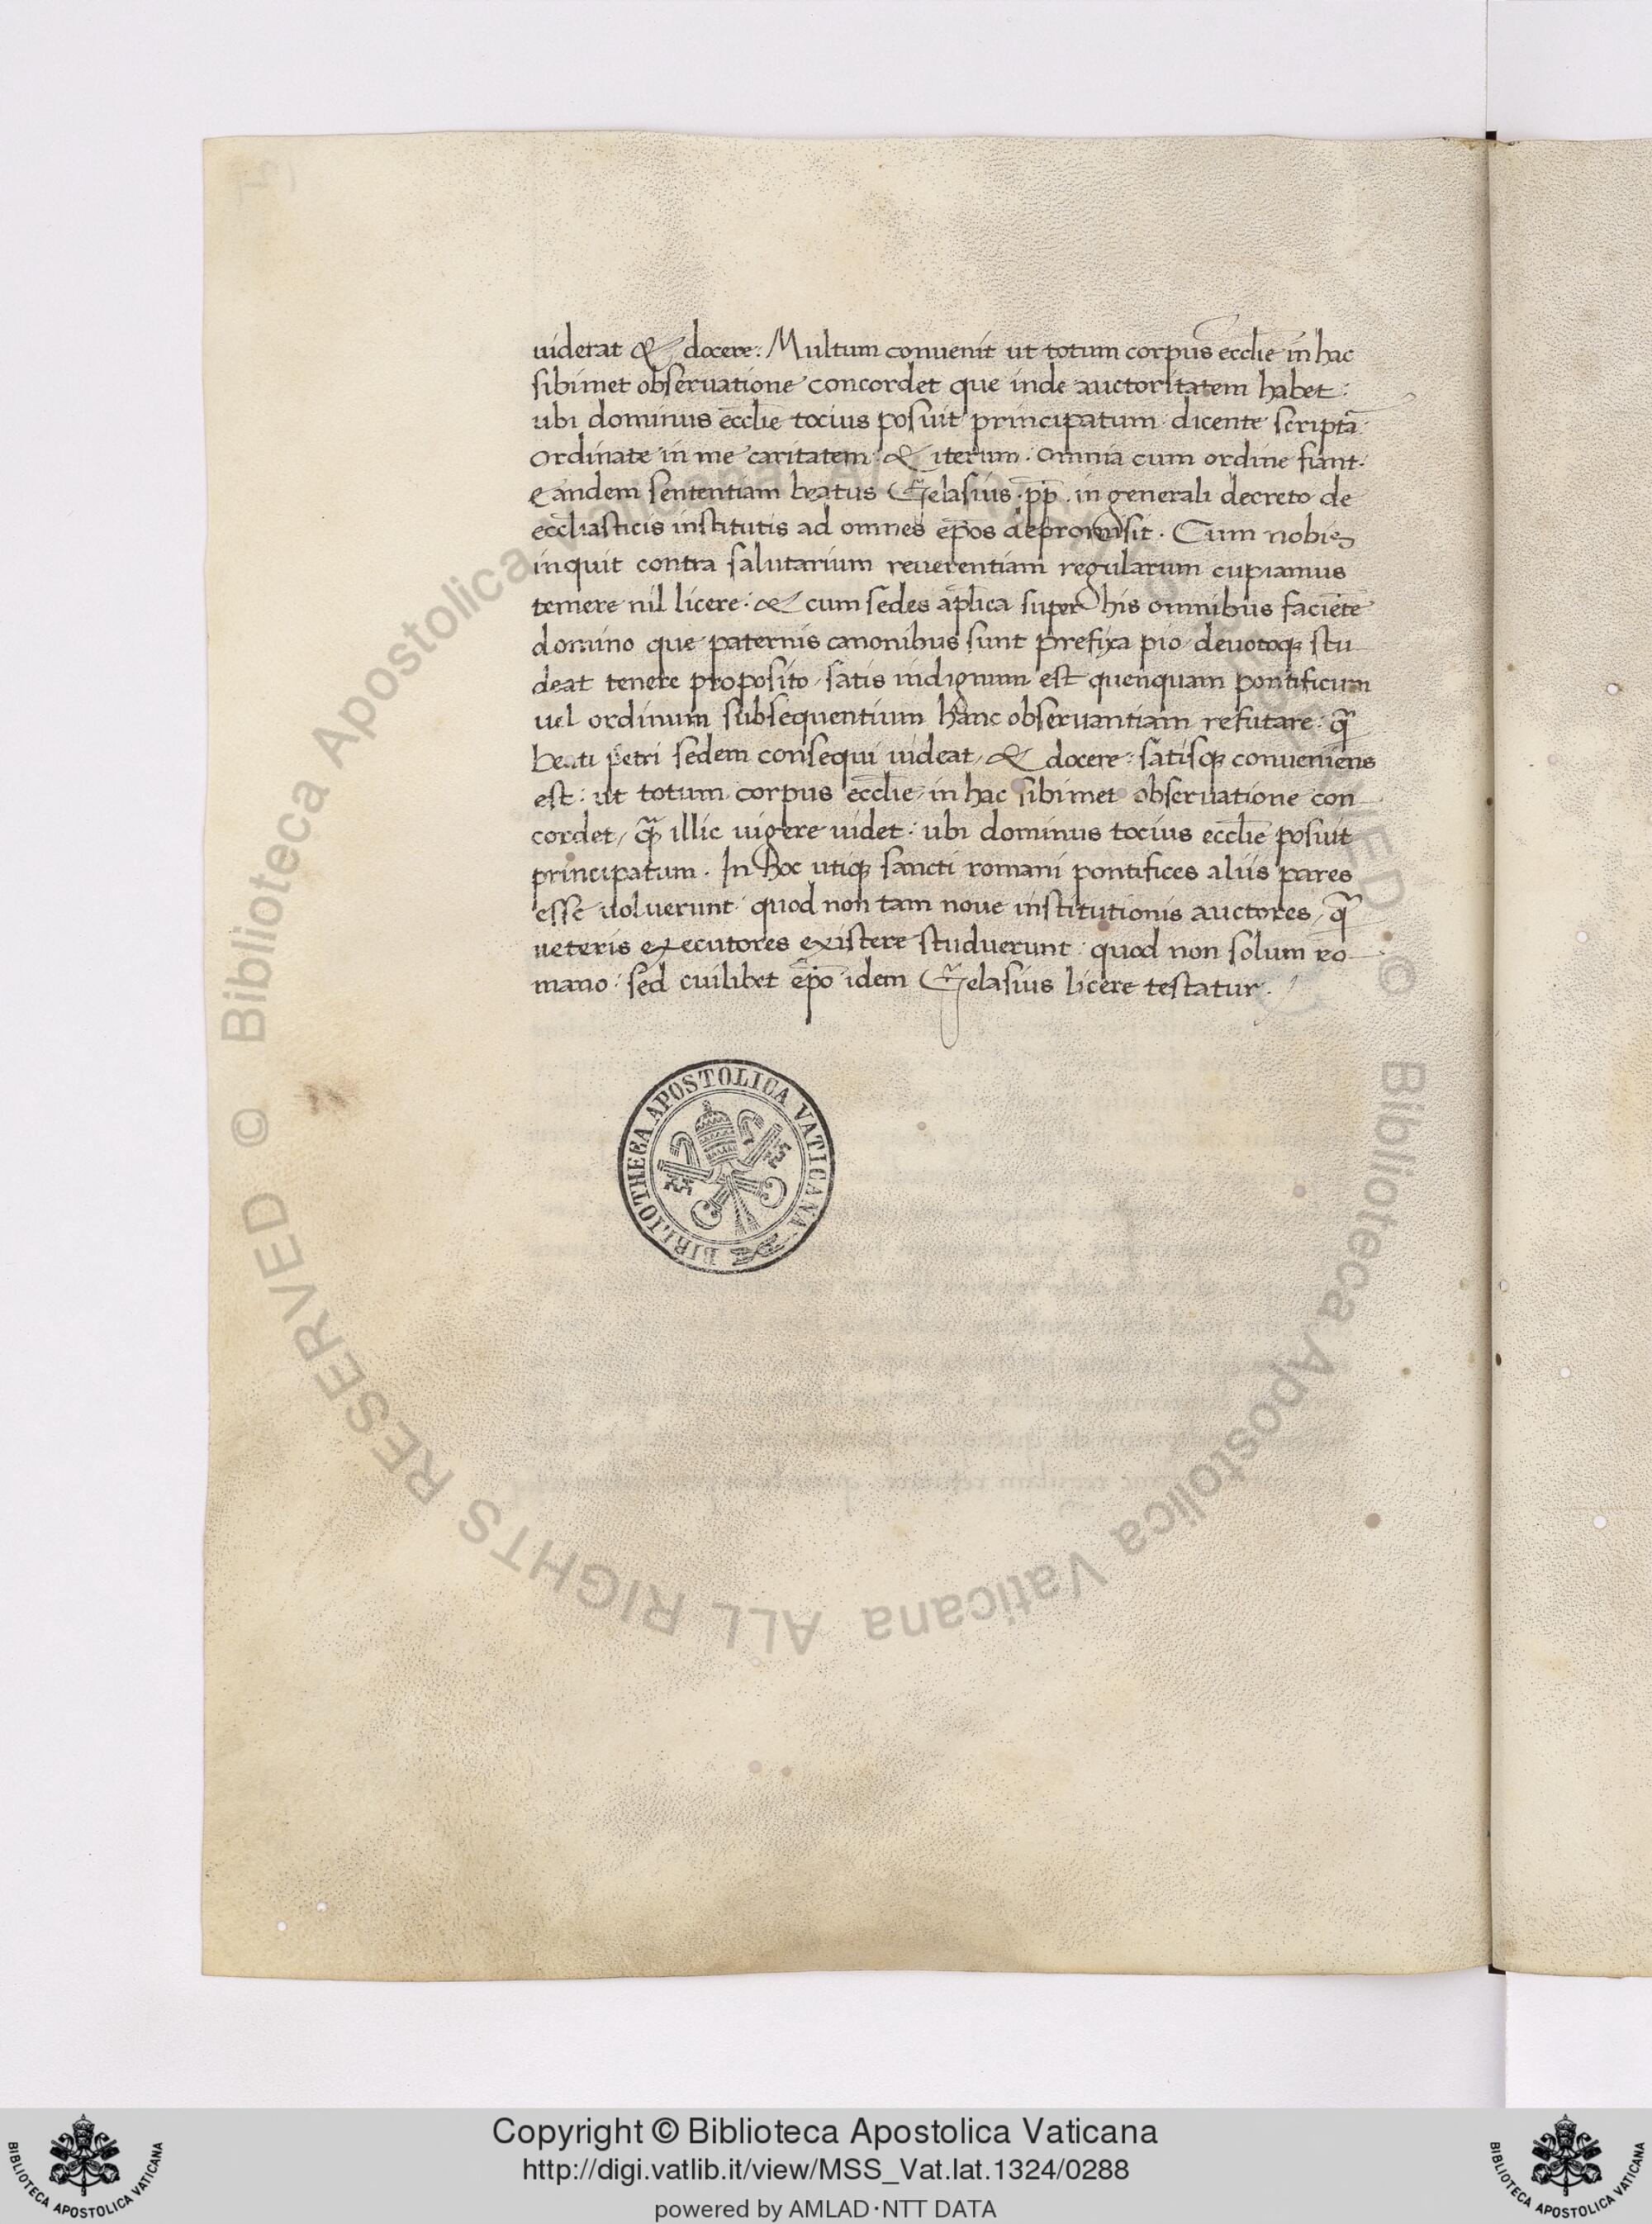 uiderat & docere. Multum conuenit ut totum corpus eccl̄ie in hac
sibimet obseruatione concordet que inde auctoritatem habet:
ubi dominus eccl̄ie tocius posuit principatum dicente scriptā
Ordinate in me caritatem. & iterum. omnia cum ordine fiant.
Eandem sententiam beatus Gelasius .pp̄. in generali decreto de
eccl̄iasticis institutis ad omnes ep̄os depromsit. Cum nobis
inquit contra salutarium reuerentiam regularum cupiamus
temere nil licere. & cum sedes ap̄lica super his omnibus faciēte
domino que paternis canonibus sunt prefixa pio deuotoq; stu
deat tenere proposito, satis indignum est quenquam pontificum
uel ordinum subsequentium hanc obseruantiam refutare. q̄
beati petri sedem consequi uideat, & docere: satisq; conueniens
est: ut totum corpus eccl̄ie in hac sibimet obseruatione con
cordet, q̄ illic uigere uidet: ubi dominus tocius eccl̄ie posuit
principatum. In hoc utiq; sancti romani pontifices aliis pares
esse uoluerunt quod non tam noue institutionis auctores, q̄
ueteris executores existere studuerunt: quod non solum ro
mano: sed cuilibet ep̄o idem Gelasius licere testatur.
BIBLIOTHECA APOSTOLICA VATICANA
© Biblioteca Apostolica Vaticana ALL RIGHTS RESERVED
© Biblioteca Apostolica Vaticana ALL RIGHTS RESERVED
Copyright © Biblioteca Apostolica Vaticana
http://digi.vatlib.it/view/MSS_Vat.lat.1324/0288
powered by AMLAD·NTT DATA
BIBLIOTECA APOSTOLICA VATICANA
BIBLIOTECA APOSTOLICA VATICANA